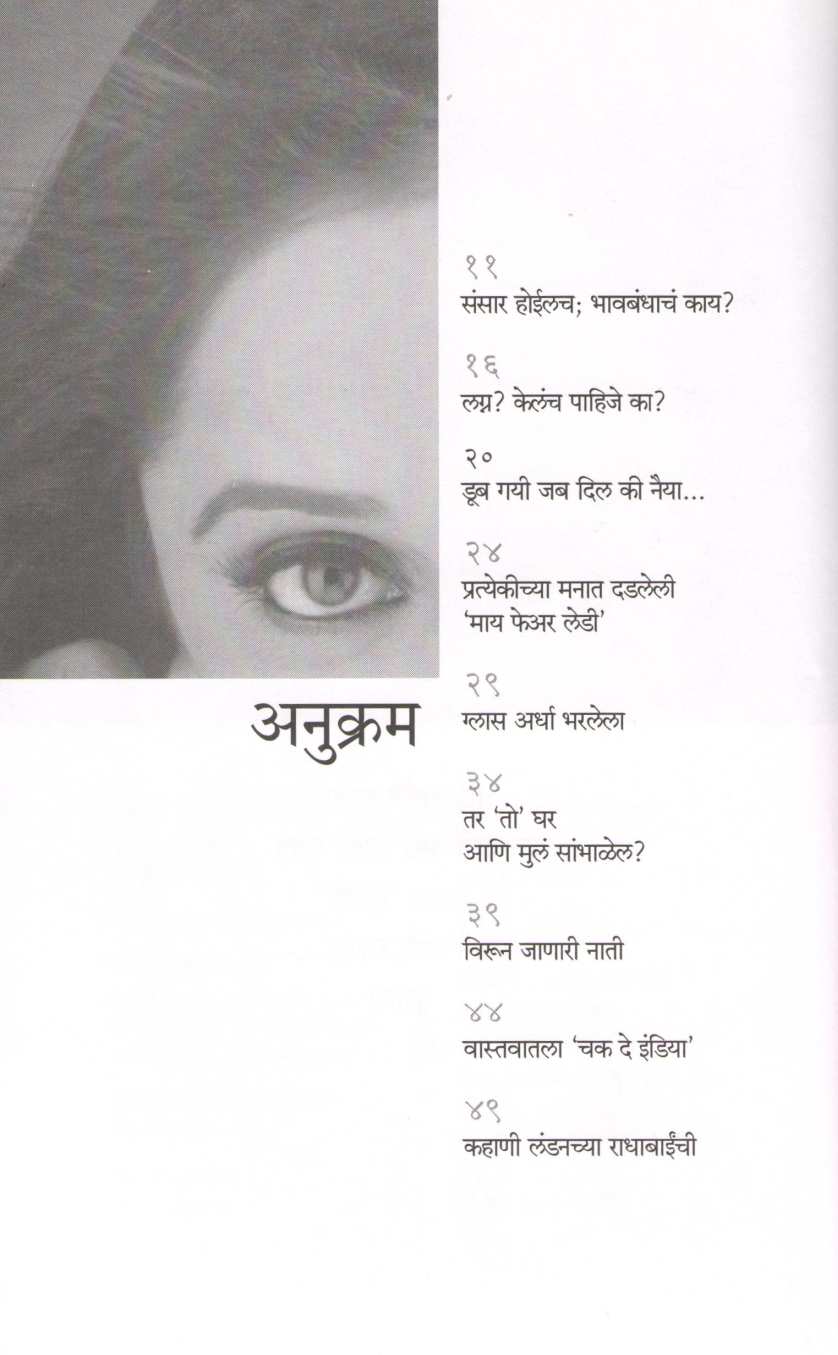 अनुक्रम
११
संसार होईलच; भावबंधाचं काय?
१६
लग्न? केलंच पाहिजे का?
२०
डूब गयी जब दिल की नैया...
२४
प्रत्येकीच्या मनात दडलेली
‘माय फेअर लेडी’
२९
ग्लास अर्धा भरलेला
३४
तर ‘तो’ घर
आणि मुलं सांभाळेल?
३९
विरून जाणारी नाती
४४
वास्तवातला ‘चक दे इंडिया’
४९
कहाणी लंडनच्या राधाबाईंची